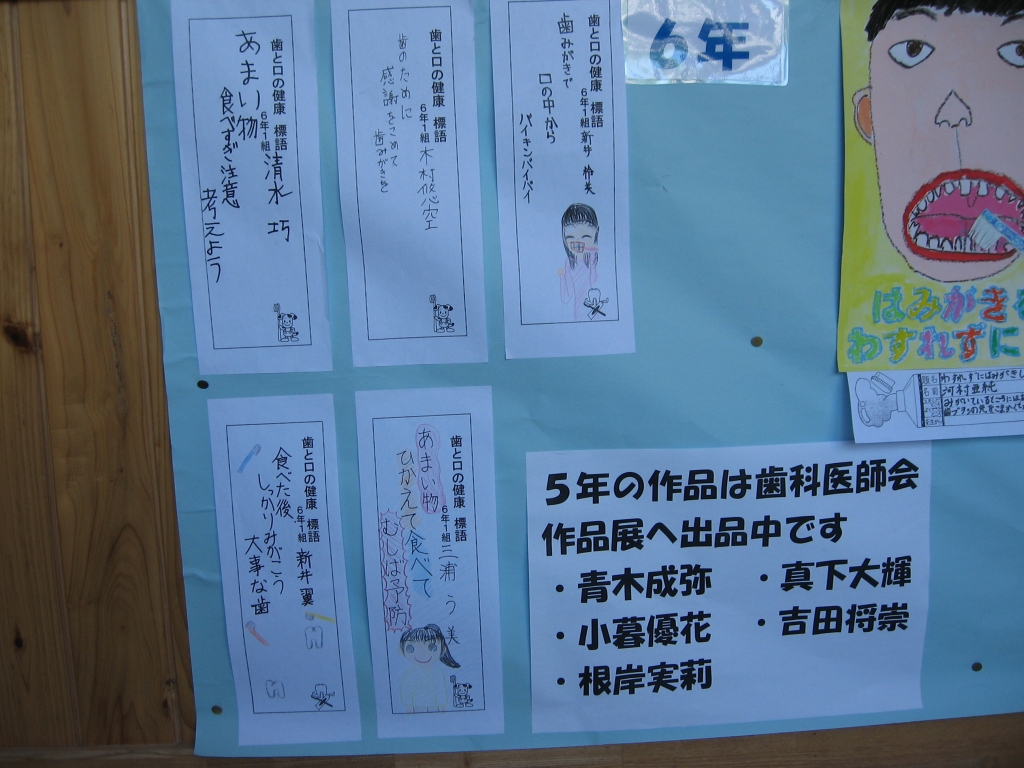 6年
歯と口の健康 標語
6年1組 新井 柳美
歯みがきで
口の中から
バイキンバイバイ
歯と口の健康 標語
6年1組 木村悠空
歯のために
感謝をこめて
歯みがきを
歯と口の健康 標語
6年1組 清水 巧
あまい物
食べすぎ注意
考えよう
歯と口の健康 標語
6年1組 三浦 う 美
あまい物
ひかえて食べて
むしば予防
歯と口の健康 標語
6年1組 新井 翼
食べた後
しっかりみがこう
大事な歯
はみがきを
わすれずに
題名 わすれずにはみがきし
名前 河村亜純
5年の作品は歯科医師会
作品展へ出品中です
・青木成弥 ・真下大輝
・小暮優花 ・吉田将崇
・根岸実莉